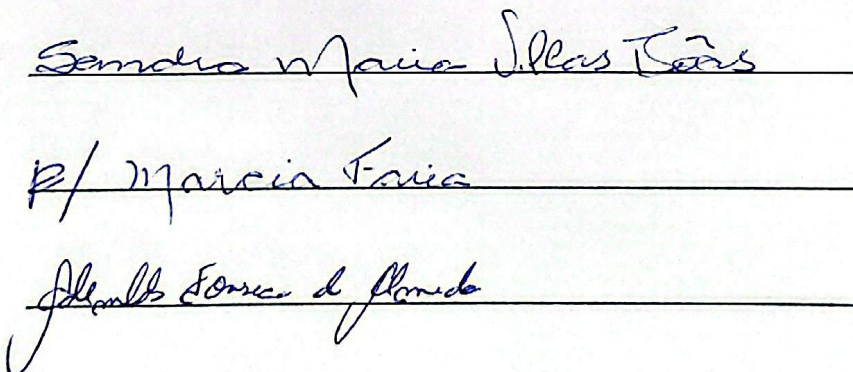 Sandra Maria Villas Bôas
p/ Marcia Faria
Fonseca d Almeida